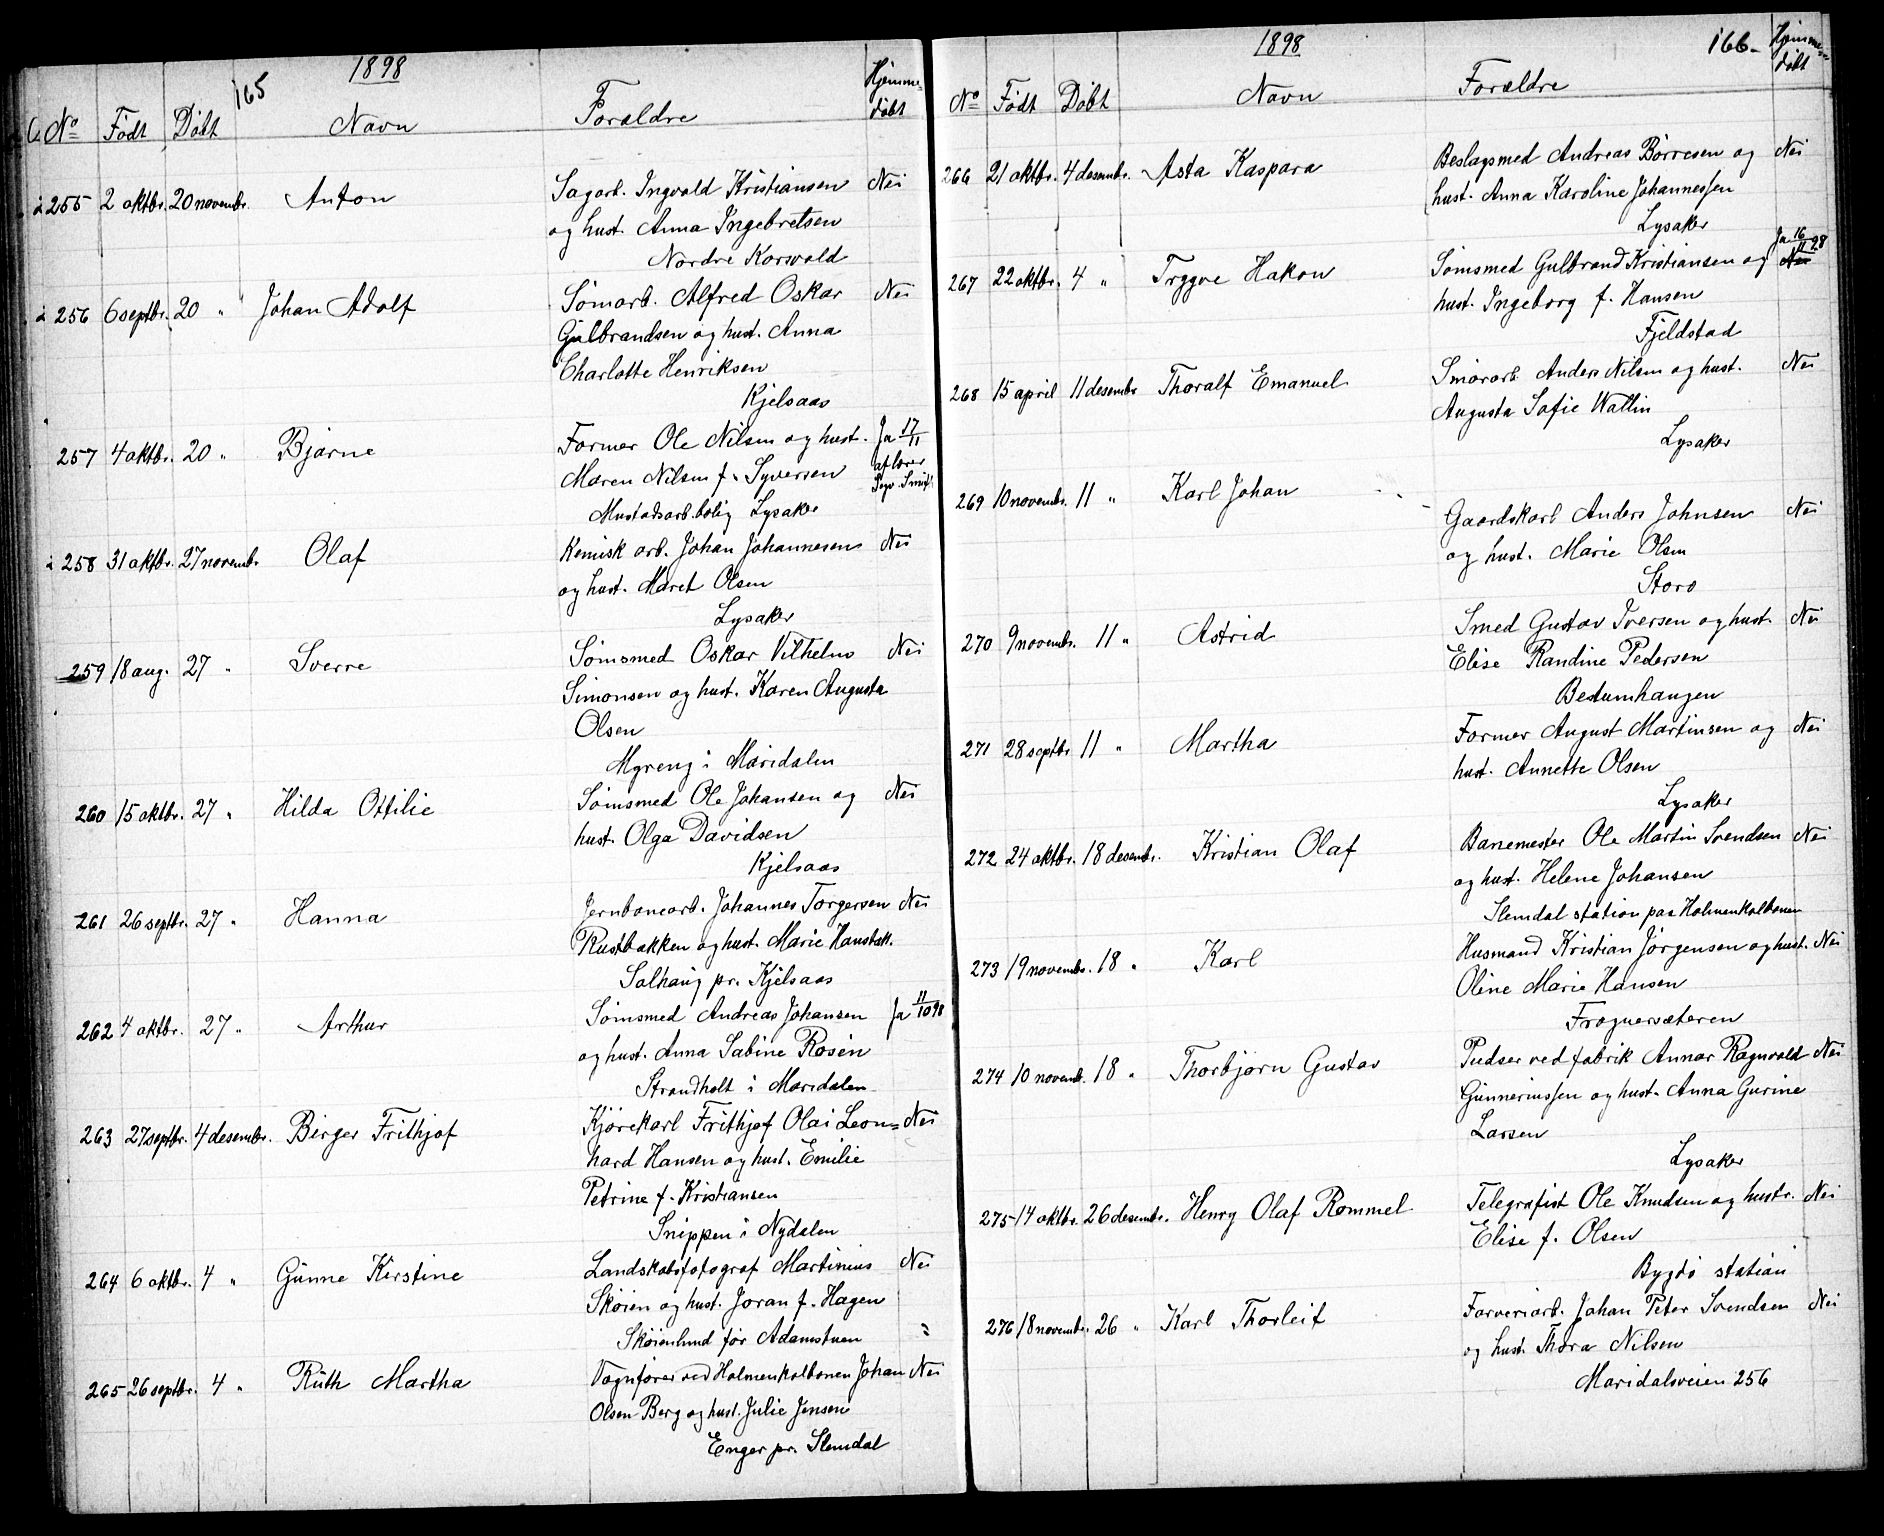 165
1898
No Født Døbt Navn Forældre Hjemme-
døbt
255 2 oktbr. 20 novembr. Anton Sagarb. Ingvald Kristiansen Nei
og hust. Anna Ingebretsen
Nordre Korsvold
256 6 septbr. 20 " Johan Adolf Sömarb. Alfred Oskar Nei
Gulbrandsen og hust. Anna
Charlotte Henriksen
Kjelsaas
257 4 oktbr. 20 " Bjarne Former Ole Nilsen og hust. Ja 17/11
Maren Nilsen f. Syversen af lærer
Mustadsarb.bolig Lysaker
258 31 oktbr. 27 novembr. Olaf Kemisk arb. Johan Johannesen Nei
og hust. Maret Olsen
Lysaker
259 18 aug. 27 " Sverre Sömsmed Oskar Vilhelm Nei
Simonsen og hust. Karen Augusta
Olsen
Myreng i Maridalen
260 15 oktbr. 27 " Hilda Ottilie Sömsmed Ole Johansen og Nei
hust. Olga Davidsen
Kjelsaas
261 26 septbr. 27 " Hanna Jernbanearb. Johannes Torgersen Nei
Rustbakken og hust. Marie Hanstak.
Solhaug pr. Kjelsaas
262 4 oktbr. 27 " Arthur Sömsmed Andreas Johansen Ja 11/10 98
og hust. Anna Sabine Rosén
Strandholt i Maridalen
263 27 septbr. 4 desembr. Birger Frithjof Kjörekarl Frithjof Olai Leon= Nei
hard Hansen og hust. Emilie
Petrine f. Kristiansen
Snippen i Nydalen
264 6 oktbr. 4 " Gunne Kirstine Landskabsfotograf Martinius Nei
Skøien og hust. Joran f. Hagen
Skøienlund før Adamstuen
265 26 septbr. 4 " Ruth Martha Vognfører ved Holmenkolbanen Johan Nei
Olsen Berg og hust. Julie Jensen
Enger pr. Slemdal
1898
166-
No Født Døbt Navn Forældre Hjemme=
døbt
266 21 oktbr. 4 desembr. Asta Kaspara Beslagsmed Andreas Börresen og Nei
hust. Anna Karoline Johannessen
Lysaker
267 22 oktbr. 4 " Trygve Hakon Sömsmed Gulbrand Kristiansen og Ja 16/11 98 Nei
hust. Ingeborg f. Hansen
Fjeldstad
268 15 april 11 desembr Thoralf Emanuel Smörarb Anders Nilsen og hust. Nei
Augusta Sofie Wallin
Lysaker
269 10 novembr. 11 " Karl Johan Gaardskarl Anders Johnsen Nei
og hust. Marie Olsen
Storo
270 9 novembr. 11 " Astrid Smed Gustav Iversen og hust. Nei
Elise Randine Pedersen
Bestumhaugen
271 28 septbr 11 " Martha Former August Martinsen og Nei
hust. Annette Olsen
Lysaker
272 24 oktbr. 18 desembr. Kristian Olaf Banemester Ole Martin Svendsen Nei
og hust. Helene Johansen
Slemdal station paa Holmenkolbanen
273 19 novembr. 18 " Karl Husmand Kristian Jörgensen og hust. Nei
Oline Marie Hansen
Frognersæteren
274 10 novemb. 18 " Thorbjørn Gustav Pudser ved fabrik Annar Ragnvald Nei
Gunneriussen og hust. Anna Gurine
Larsen
Lysaker
275 14 oktbr. 26 desembr. Henry Olaf Rommel Telegrafist Ole Knudsen og hustr. Nei
Elise f. Olsen
Bygdö station
276 18 novembr. 26 " Karl Thorleif Farveriarb. Johan Peter Svendsen Nei
og hust. Thora Nilsen
Maridalsveien 256